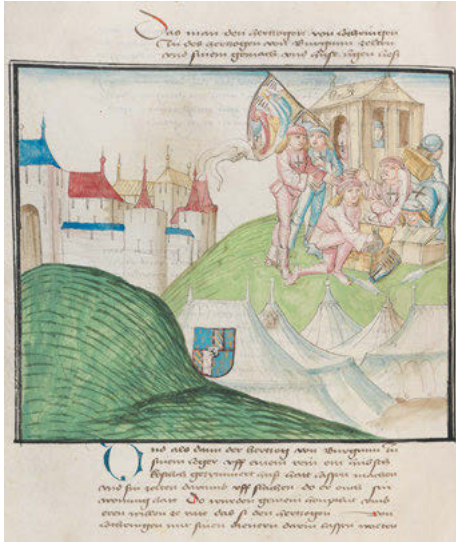 Das man den hertzogen von Lothringen
In des hertzogen von Burgunn zelten
und sinem gemach und huse ligen lies
Und als dann der hertzog von Burgunn in
sinem leger uff einem rein ein
huß hatt lassen machen
und sin zelten darumb uff slachen do er ouch sin
wonung hatt Do wurden gemein houptlut und
eren willen ze rate das si den hertzogen von
Lothringen mit sinen dienern darin lassen